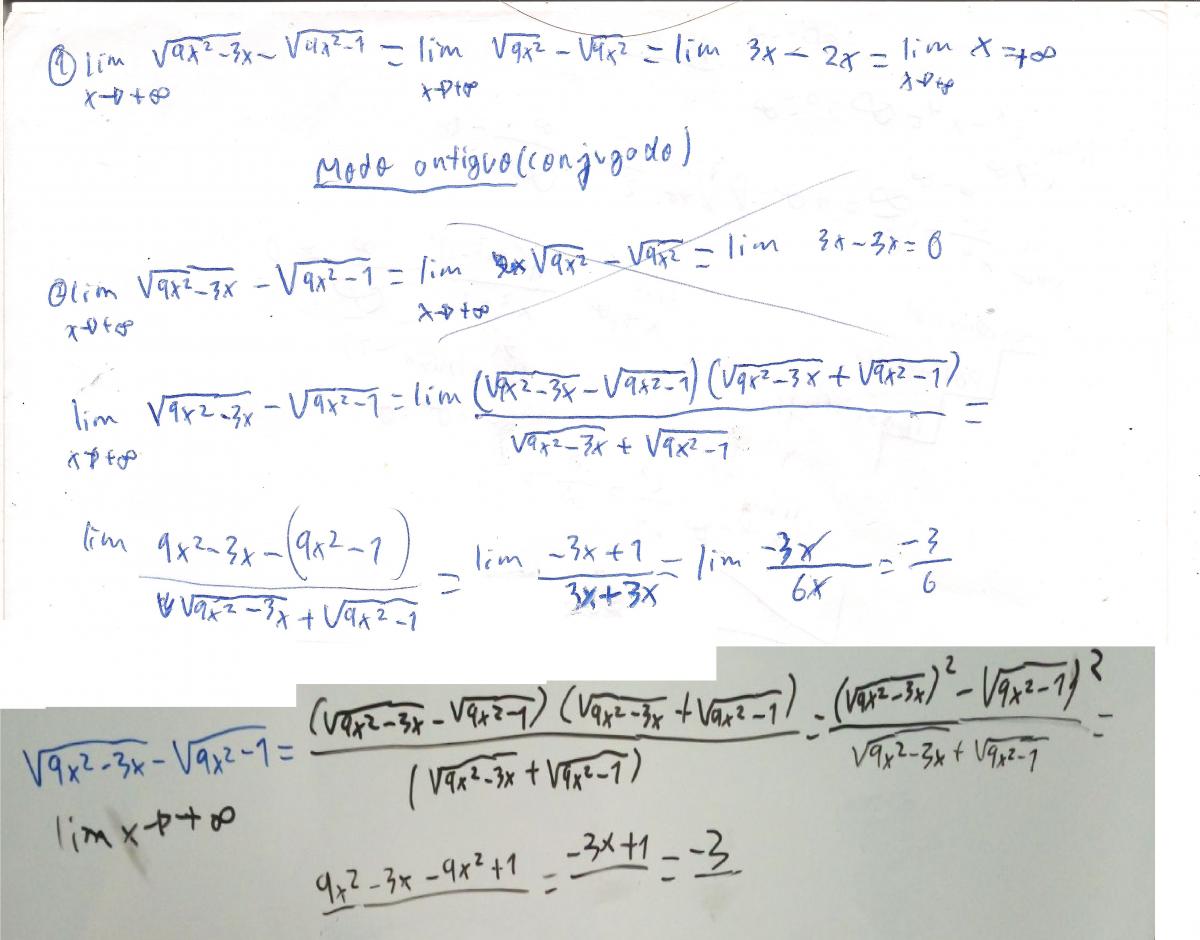 ① lim x→+∞ √(9x²-3x) - √(4x²-1) = lim x→+∞ √(9x²) - √(4x²) = lim 3x - 2x = lim x→+∞ x = +∞
Modo antiguo (conjugado)
② lim x→+∞ √(9x²-3x) - √(9x²-1) = lim x→+∞ √(9x²) - √(9x²) = lim 3x - 3x = 0
lim x→+∞ √(9x²-3x) - √(9x²-1) = lim (√(9x²-3x) - √(9x²-1)) (√(9x²-3x) + √(9x²-1)) / (√(9x²-3x) + √(9x²-1)) =
lim (9x²-3x-(9x²-1)) / (√(9x²-3x) + √(9x²-1)) = lim (-3x+1) / (3x+3x) = lim -3x / 6x = -3 / 6
√(9x²-3x) - √(9x²-1) = (√(9x²-3x) - √(9x²-1)) (√(9x²-3x) + √(9x²-1)) / (√(9x²-3x) + √(9x²-1)) = ((√(9x²-3x))² - √(9x²-1))² / (√(9x²-3x) + √(9x²-1)) =
lim x→+∞
9x²-3x-9x²+1 = -3x+1 = -3